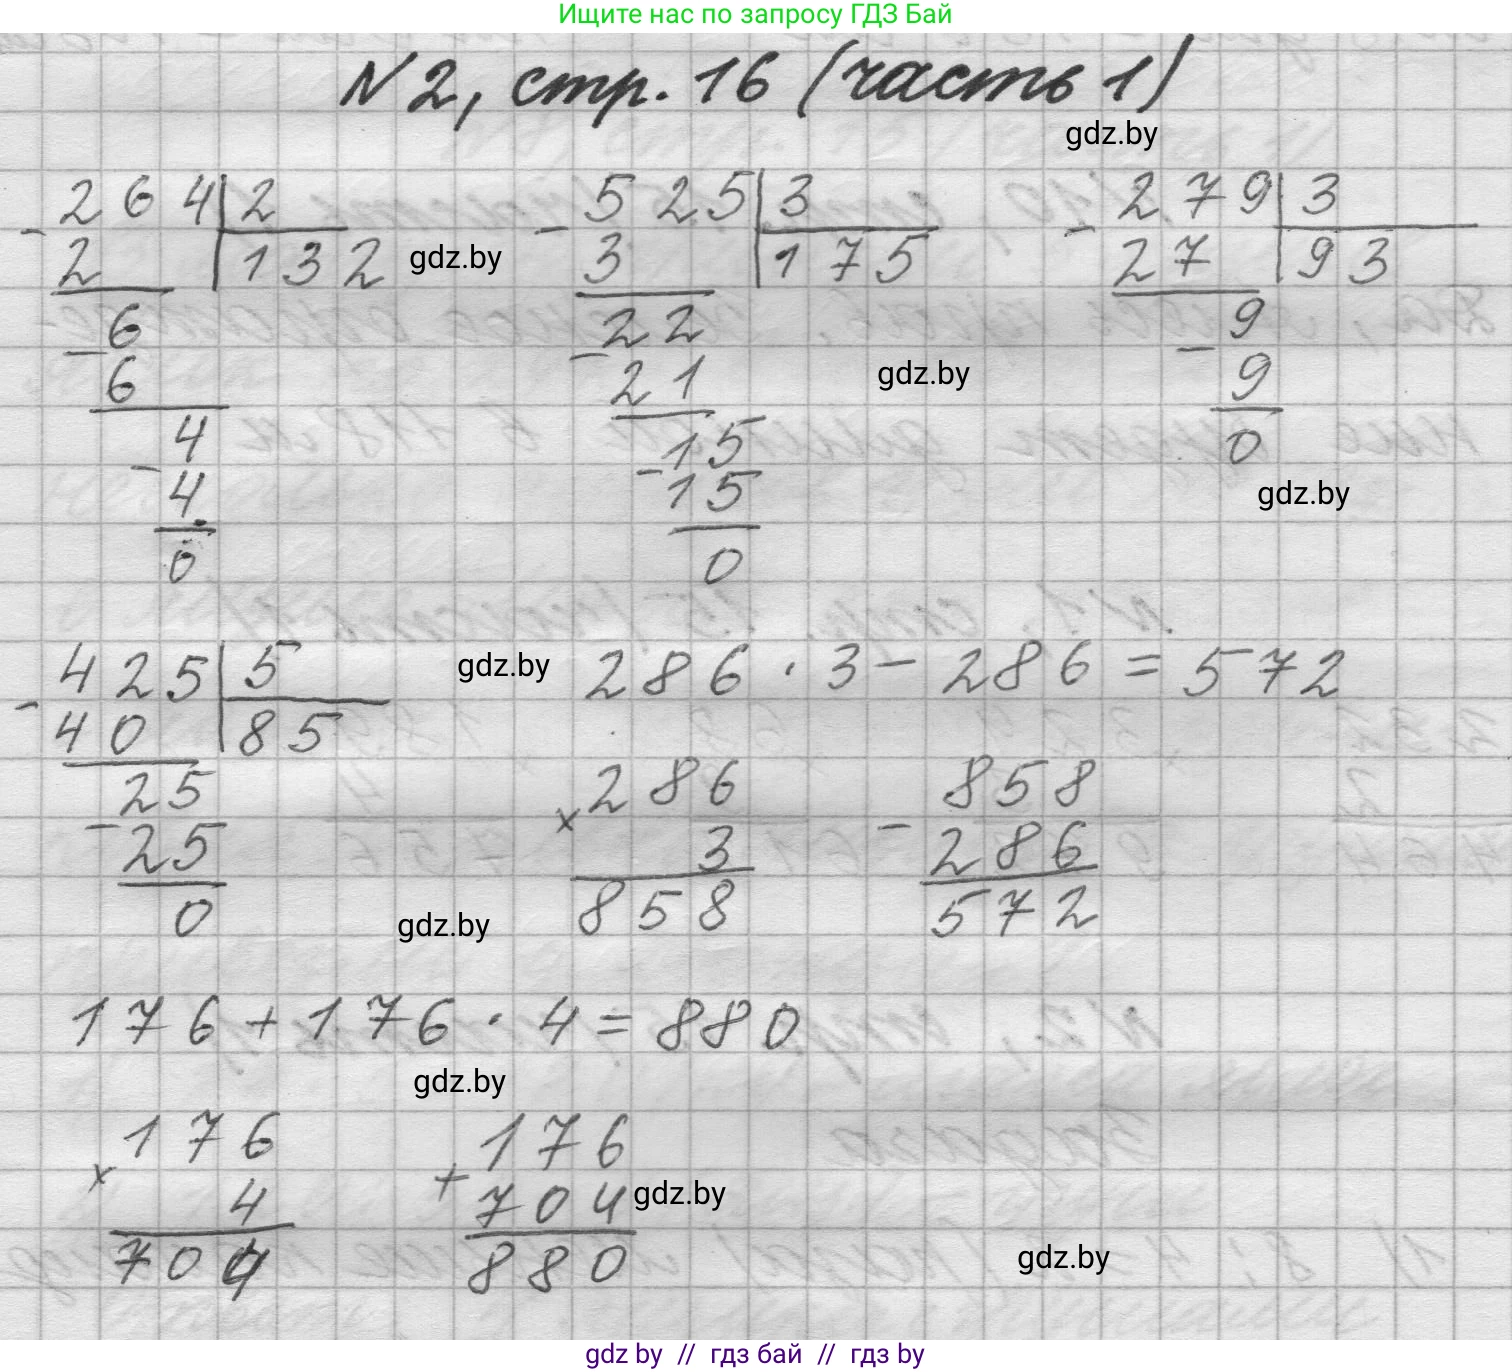 Ищите нас по запросу ГДЗ Бай
№2, стр. 16 (часть 1)
gdz.by
- 264 | 2   - 525 | 3   - 279 | 3
2 | 132 gdz.by   3 | 175   27 | 93
6   22   9
- 6   - 21 gdz.by   - 9
4   15   0
- 4   - 15 gdz.by
0   0
- 425 | 5 gdz.by 286 · 3 - 286 = 572
40 | 85
25   × 286   - 858
- 25   3   286
0 gdz.by   858   572
176 + 176 · 4 = 880
gdz.by
× 176   + 176
4   704 gdz.by
704   880 gdz.by
gdz by // гдз бай // гдз by